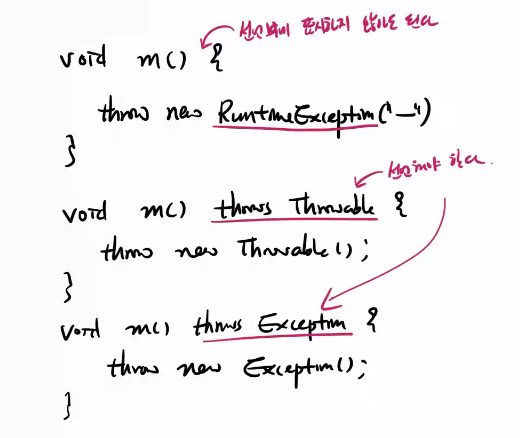 선언부에 표시하지 않아도 된다
void m() {
throw new RuntimeException("—")
}
선언해야 한다.
void m() throws Throwable {
throw new Throwable();
}
void m() throws Exception {
throw new Exception();
}